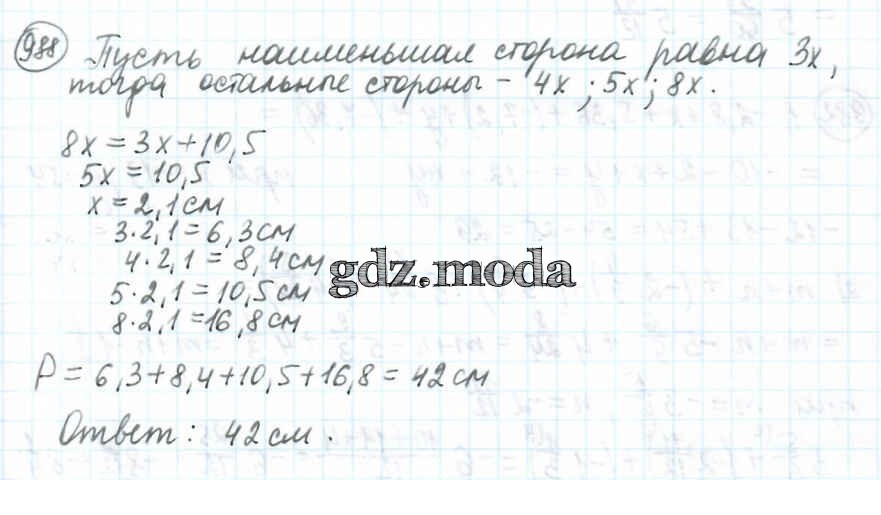 988 Пусть наименьшая сторона равна 3x,
тогда остальные стороны - 4x; 5x; 8x.
8x = 3x + 10,5
5x = 10,5
x = 2,1 см
3·2,1 = 6,3 см
4·2,1 = 8,4 см
gdz.moda
5·2,1 = 10,5 см
8·2,1 = 16,8 см
P = 6,3 + 8,4 + 10,5 + 16,8 = 42 см
Ответ: 42 см.